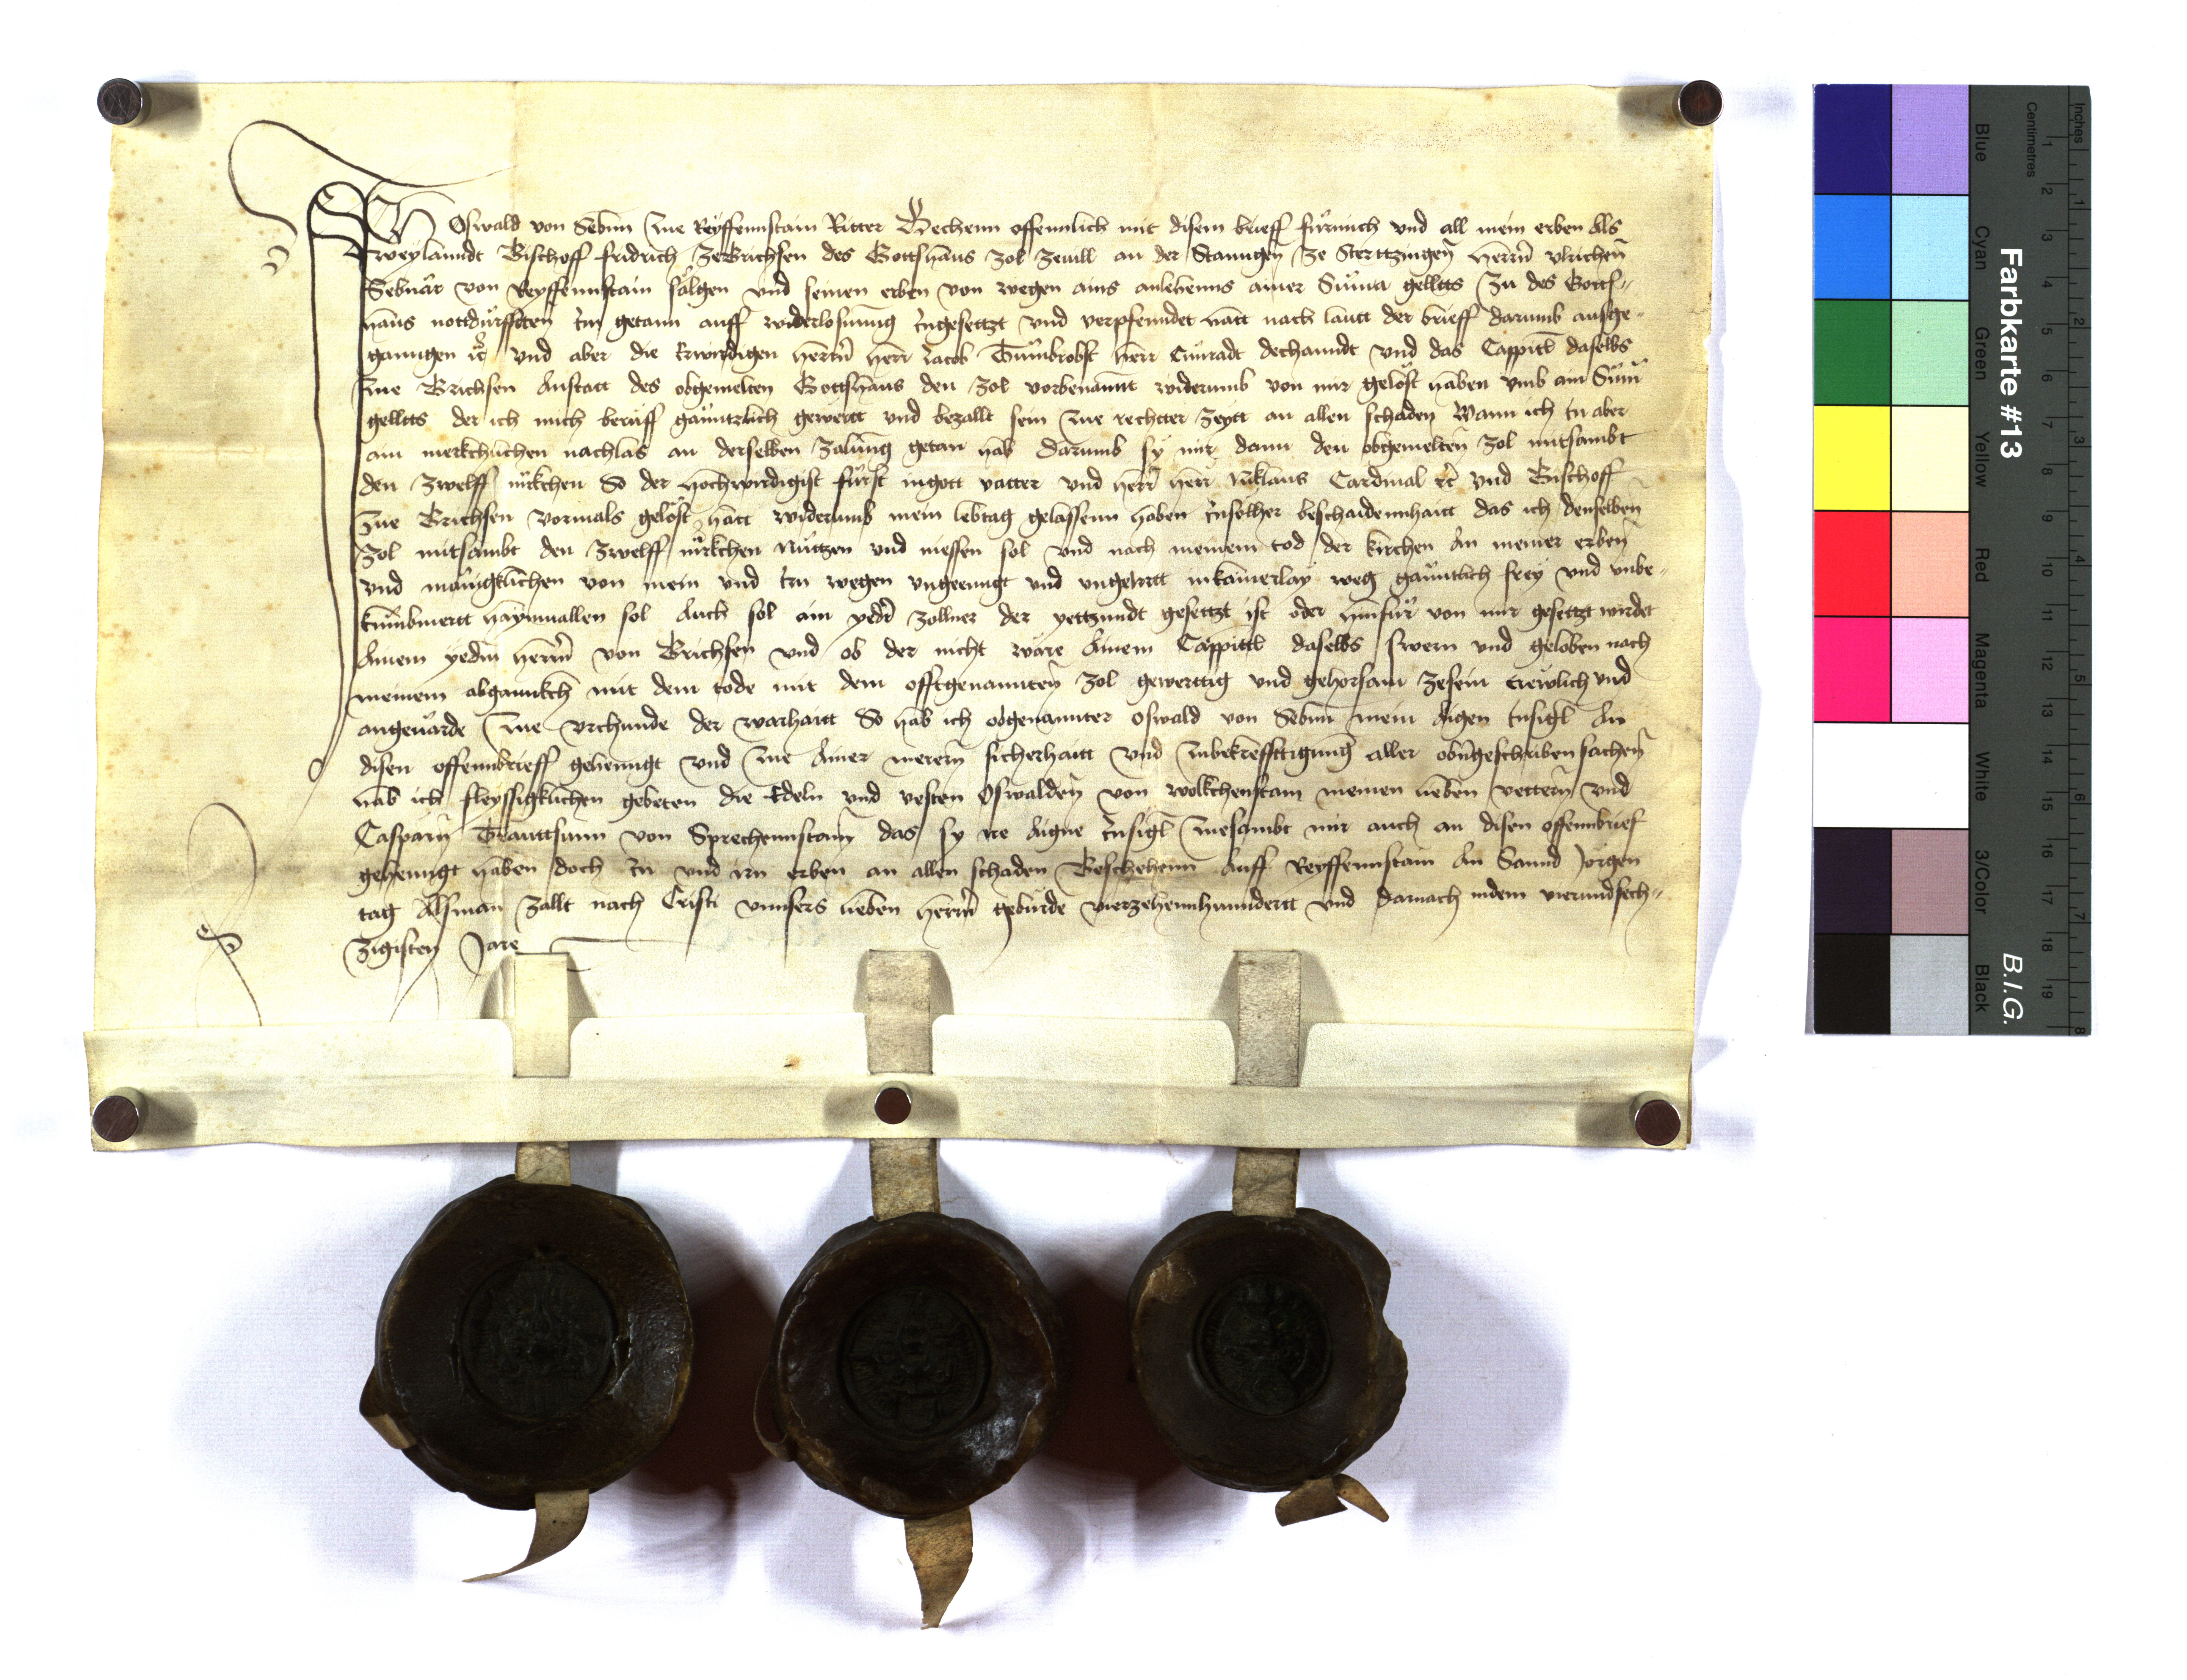 Ich Oswald von Sebenn zue Reyffennstain Ritter Bechenn offennlich mit disem brieff fürmich vnd all mein erben Als
weylanndt Bischoff fridrich zeBrichsen des Gottshaus zol zenill an der Stanngen ze Stertzingen herrn vlrichen
Sebnär von Reyffennstain sälgen vnd seinen erben von wegen ains anlehenns ainer Suma gellts zu des Gotts//
haus nottdürfften Im getann auff widerlosunng Ingesetzt vnd verpfenndet hatt nach lautt der brieff darumb ausge//
ganngen rc vnd aber die Erwirdigen herrn herr Jacob Tumbrobst herr Cunradt dechanndt vnd das Cappitl daselbs
zue Brichsen Anstatt des obgemelten Gottshaus den zol vorbenannt widerumb von mir gelöst haben vmb ain Sum
gellts der ich mich beruff gänntzlich gewertt vnd bezallt sein zue rechtter zeytt an allen schaden Wann ich In aber
ain merkchlichen nachlas an derselben zalung getan hab darumb sy mir dann den obgemelten zol mitsambt
den zwelff mrkchen So der hochwirdigist fürst ingott vatter vnd herr herr Niklaus Cardinal rc vnd Bischoff
zue Brichsen vormals gelöst hatt widerumb mein lebtag gelassenn haben Insolher beschaidennhaitt das ich denselben
zol mitsambt den zwelff mrkchen Nutzen vnd niessen sol vnd nach meinem tod der kirchen An meiner erben
vnd mänigklichen von mein vnd Irn wegen vngeenngt vnd vngeirrtt inkainerlay weg gänntlich frey vnd vnbe//
kumbmertt haymuallen sol Auch sol ain yeder zollner der yettzundt gesetzt ist oder hinfür von mir gesetzt wirdet
Ainem yedem herrn von Brichsen vnd ob der nicht wäre Ainem Cappittl daselbs swern vnd geloben nach
meinem abganngkh mit dem tode mit dem offtgenannten zol gewerttig vnd gehorsam zesein trewlich vnd
angeuärde zue vrchunde der warhaitt So hab ich obgenannter Oswald von Sebenn mein Aigen Insigl An
disen offennbrieff gehenngt vnd zue Ainer merern sicherhaitt vnd zubekrefftigung aller obengeschriben sachen
hab ich fleyssigklichen gebeten die Edeln vnd vesten Oswalden von wolkchenstain meinen lieben vettern vnd
Casparn Trauttsunn von Sprechennstain das sy ire Aigne Insigl zuesambt mir auch an disen offennbrief
gehenngt haben doch In vnd irn erben an allen schaden Beschehenn Auff Reyffennstain An Sannd Jorgen
tag Alsman zallt nach Cristi vnnsers lieben herrn geburde vierzehennhunndertt vnd darnach indem vierundsech//
zigisten Jare
Farbkarte #13
B.I.G.
Inches
Centimetres
Blue
Cyan
Green
Yellow
Red
Magenta
White
3/Color
Black
1 2 3 4 5 6 7 8 9 10 11 12 13 14 15 16 17 18 19
1 2 3 4 5 6 7 8